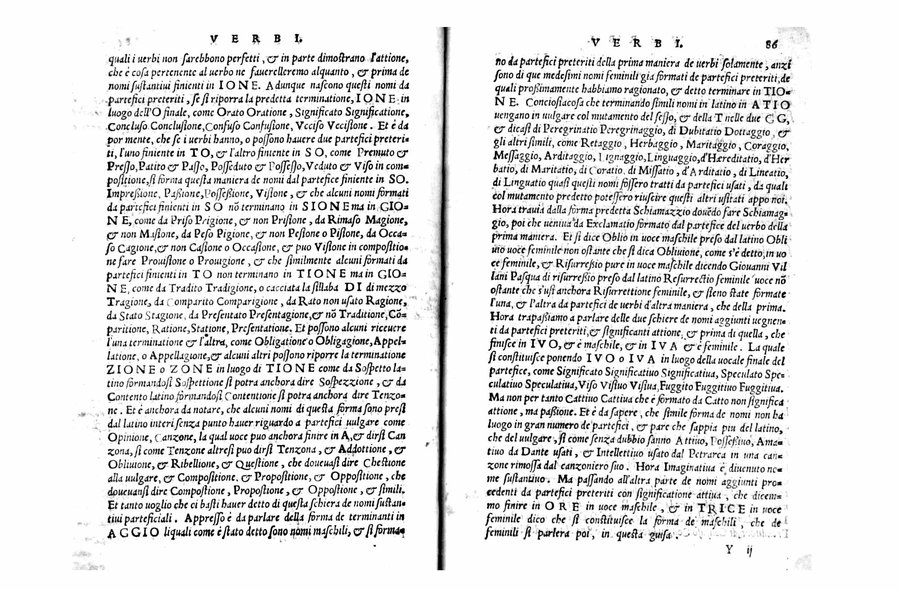 VERBI.
quali i verbi non sarebbono perfetti, & in parte dimostrano l'attione,
che è cosa pertenente al uerbo ne fauerelleremo alquanto, & prima de
nomi sustantiui finienti in IONE. Adunque nascono questi nomi da
partefici preteriti, se si riporra la predetta terminatione, IONE in
luogo dell'O finale, come Orato Oratione, Significato Significatione,
Concluso Conclusione, Confuso Confusione, Vcciso Vccisione. Et è da
por mente, che se i uerbi hanno, o possono hauere due partefici preteri-
ti, l'uno finiente in TO, & l'altro finiente in SO, come Premuto &
Presso, Patito & Passo, Posseduto & Possesso, Veduto & Viso in com-
positione, si forma questa maniera de nomi dal partefice finiente in SO.
Impressione, Passione, Possessione, Visione, & che alcuni nomi formati
da partefici finienti in SO nõ terminano in SIONE ma in GIO-
NE, come da Priso Prigione, & non Prisione, da Rimaso Magione,
& non Masione, da Peso Pigione, & non Pesione o Pisione, da Occa-
so Cagione, & non Casione o Occasione, & puo Visione in compositio-
ne fare Prouisione o Prouigione, & che similmente alcuni formati da
partefici finienti in TO non terminano in TIONE ma in GIO-
NE, come da Tradito Tradigione, o cacciata la sillaba DI di mezzo
Tragione, da Comparito Comparigione, da Rato non usato Ragione,
da Stato Stagione, da Presentato Presentagione, & nõ Traditione, Cõ-
paritione, Ratione, Statione, Presentatione. Et possono alcuni riceuere
l'una terminatione & l'altra, come Obligatione o Obligagione, Appel-
latione, o Appellagione, & alcuni altri possono riporre la terminatione
ZIONE o ZONE in luogo di TIONE come da Sospetto la-
tino formandosi Sospettione si potra anchora dire Sospezzione, & da
Contento Latino formandosi Contentione si potra anchora dire Tenzo-
ne. Et è anchora da notare, che alcuni nomi di questa forma sono presi
dal latino interi senza punto hauer riguardo a partefici uulgare come
Opinione, Canzone, la qual uoce puo anchora finire in A, & dirsi Can
zona, si come Tenzone altresi puo dirsi Tenzona, & Addottione, &
Obliuione, & Ribellione, & Questione, che doueuasi dire Chestione
alla uulgare, & Compositione, & Propositione, & Oppositione, che
doueuansi dire Compostione, Propostione, & Oppostione, & simili.
Et tanto uoglio che ci basti hauer detto di questa schiera de nomi sustan-
tiui parteficiali. Appresso è da parlare della forma de terminanti in
AGGIO li quali come è stato detto sono nomi maschili, & si forma-
VERBI. 86
no da partefici preteriti della prima maniera de uerbi solamente, anzi
sono di que medesimi nomi feminili gia formati de partefici preteriti, de
quali prossimamente habbiamo ragionato, & detto terminare in TIO-
NE. Conciosiacosa che terminando simili nomi in latino in ATIO
uengano in uulgar col mutamento del sesso, & della T nelle due GG,
& dicasi di Peregrinatio Peregrinaggio, di Dubitatio Dottaggio, &
gli altri simili, come Retaggio, Herbaggio, Maritaggio, Coraggio,
Messaggio, Arditaggio, Lignaggio, Linguaggio, d'Hereditatio, d'Her
batio, di Maritatio, di Coratio, di Missatio, d'Arditatio, di Lineatio,
di Linguatio quasi questi nomi fossero tratti da partefici usati, da quali
col mutamento predetto potessero riuscire questi altri usitati appo noi.
Hora trauia dalla forma predetta Schiamazzio douẽdo fare Schiamag-
gio, poi che ueniua da Exclamatio formato dal partefice del uerbo della
prima maniera. Et si dice Oblio in uoce maschile preso dal latino Obli
uio uoce feminile non ostante che si dica Obliuione, come s'è detto, in uo
ce feminile, & Risurressio pure in uoce maschile dicendo Giouanni Vil
lani Pasqua di risurressio preso dal latino Resurrectio feminile uoce nõ
ostante che s'usi anchora Risurrettione feminile, & sieno state formate
l'una, & l'altra da partefici de uerbi d'altra maniera, che della prima.
Hora trapassiamo a parlare delle due schiere de nomi aggiunti uegnen-
ti da partefici preteriti, & significanti attione, & prima di quella, che
finisce in IVO, & è maschile, & in IVA & è feminile. La quale
si constituisce ponendo IVO o IVA in luogo della uocale finale del
partefice, come Significato Significatiuo Significatiua, Speculato Spe-
culatiuo Speculatiua, Viso Visiuo Visiua, Fuggito Fuggitiuo Fuggitiua.
Ma non per tanto Cattiuo Cattiua che è formato da Catto non significa
attione, ma passione. Et è da sapere, che simile forma de nomi non ha
luogo in gran numero de partefici, & pare che sappia piu del latino,
che del uulgare, si come senza dubbio sanno Attiuo, Possessiuo, Ama-
tiuo da Dante usati, & Intellettiuo usato dal Petrarca in una can-
zone rimossa dal canzoniero suo. Hora Imaginatiua è diuenuto no-
me sustantiuo. Ma passando all'altra parte de nomi aggiunti pro-
cedenti da partefici preteriti con significatione attiua, che dicem-
mo finire in ORE in uoce maschile, & in TRICE in uoce
feminile dico che si constituisce la forma de maschili, che de
feminili si parlera poi, in questa guisa.
Y ij